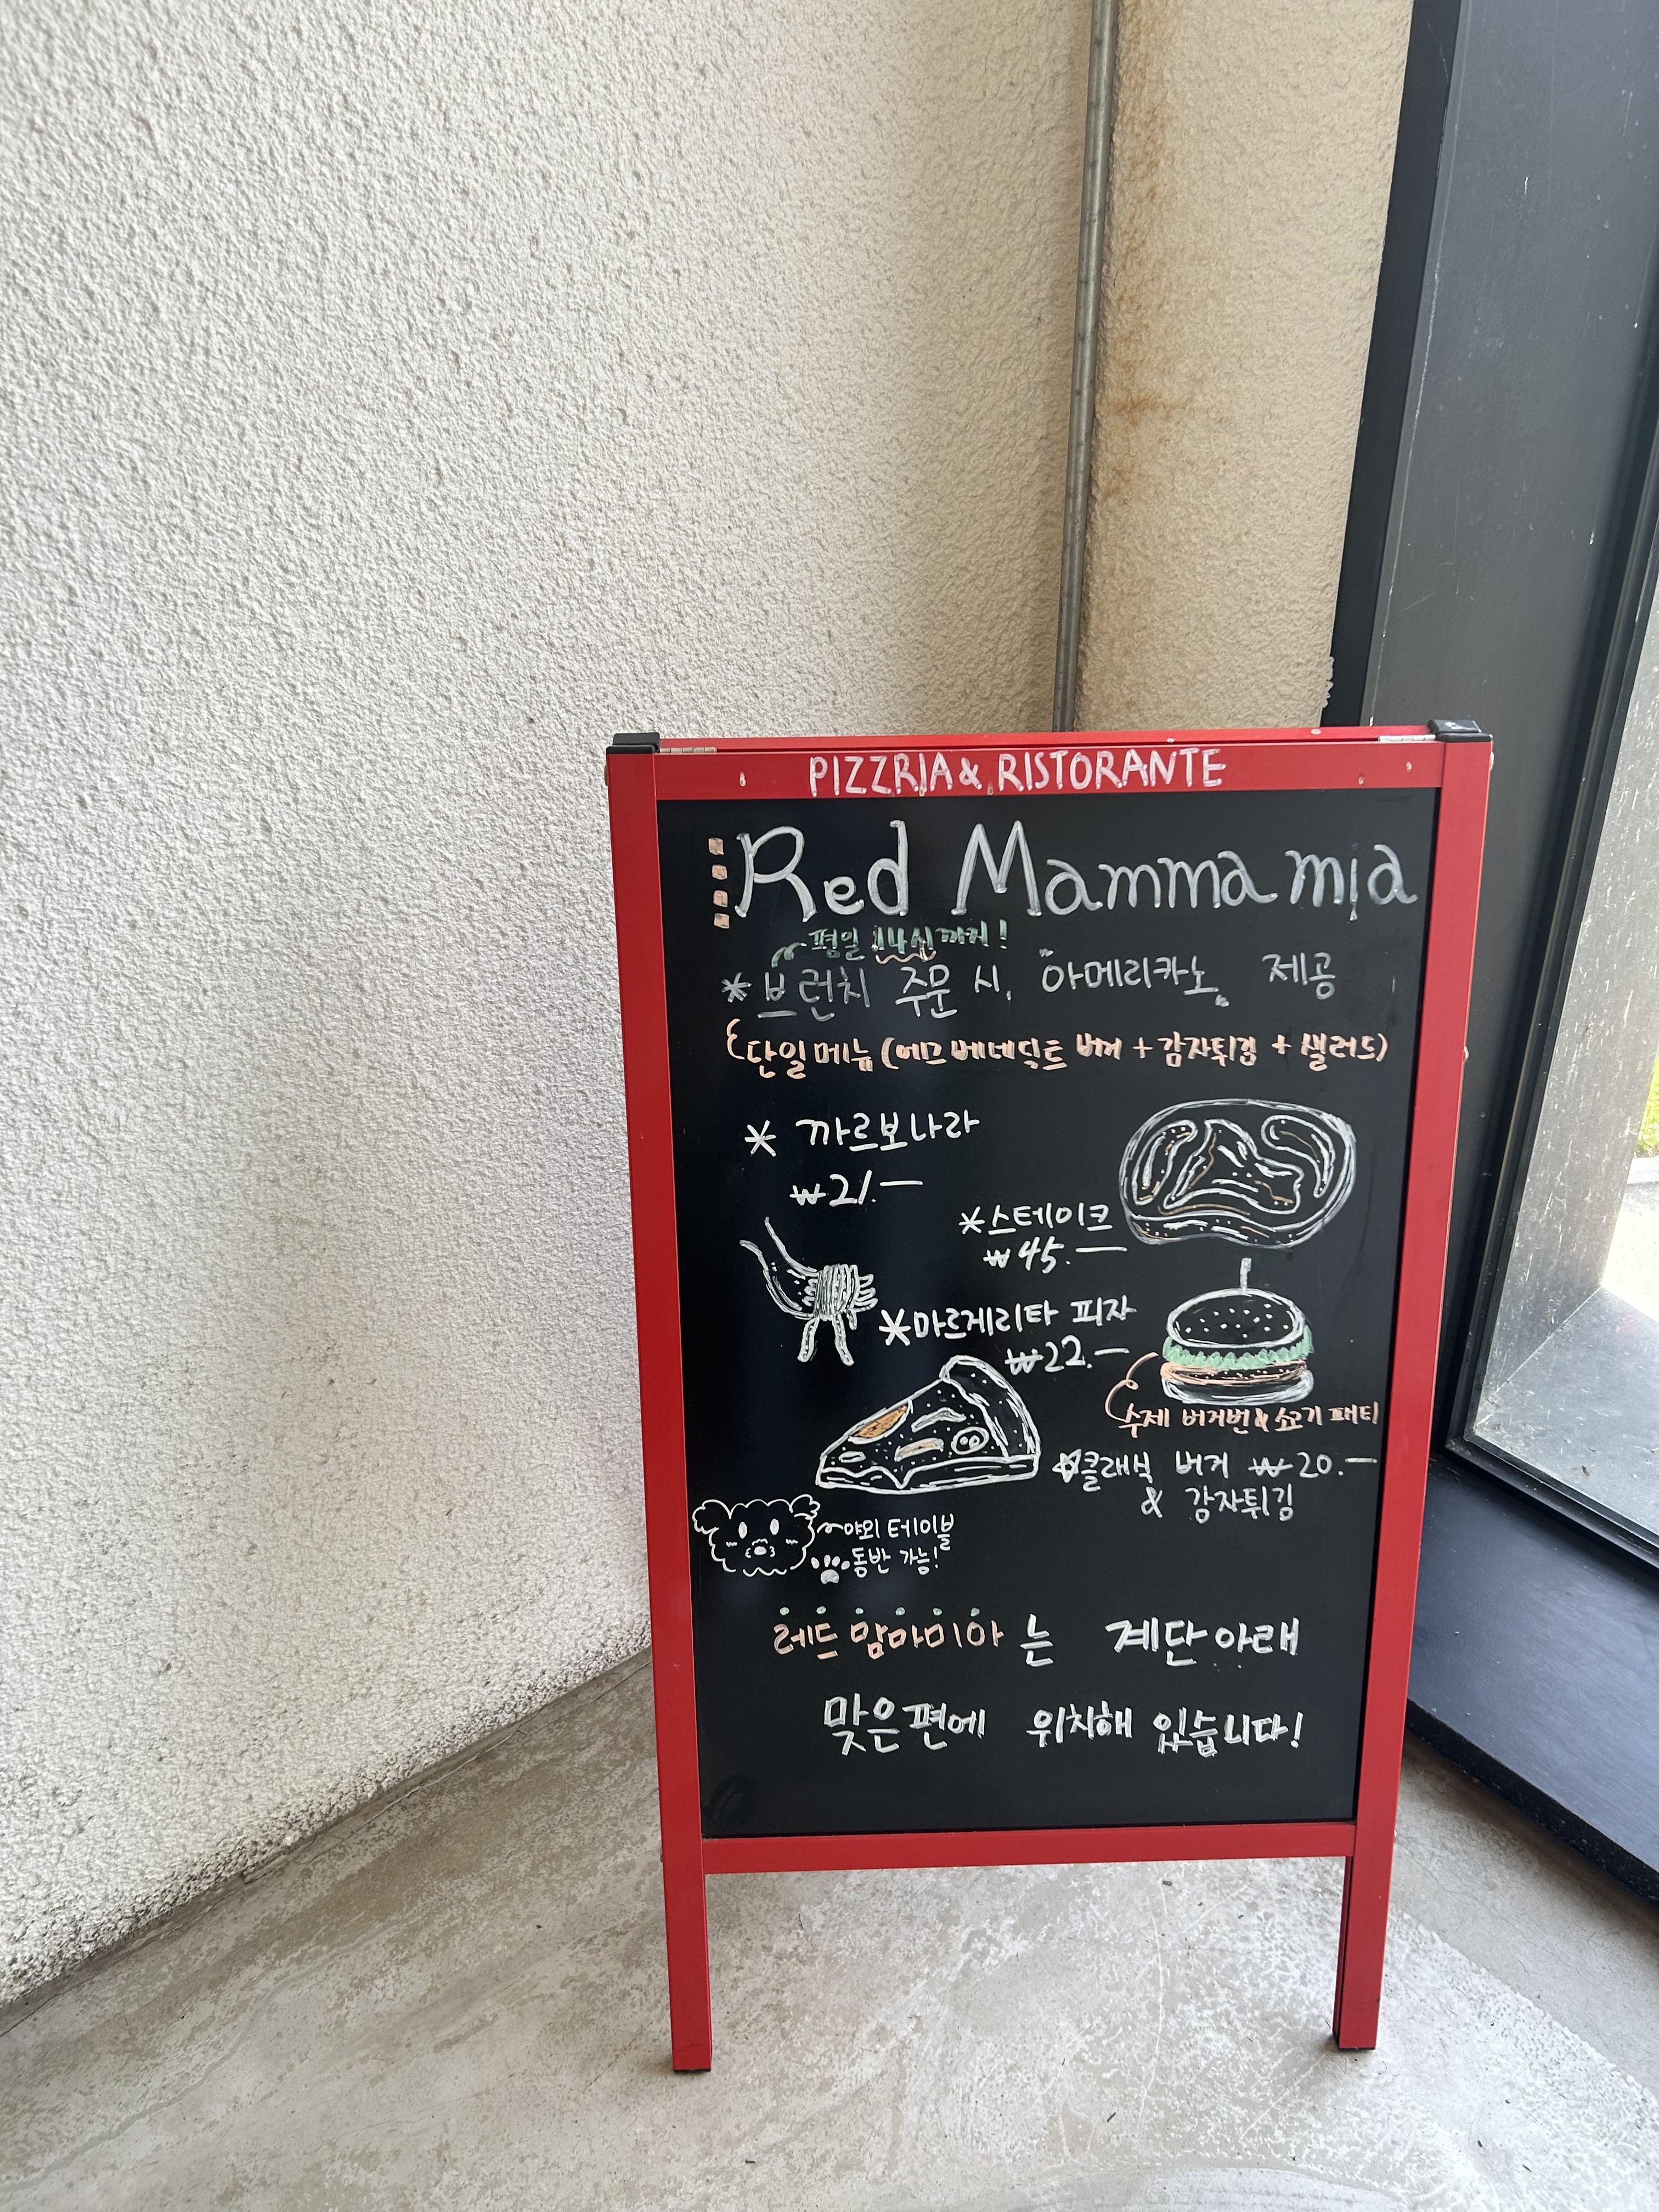 PIZZRIA & RISTORANTE
Red Mamma mia
평일 14시까지!
* 브런치 주문 시, "아메리카노" 제공
단일메뉴 (에그베네딕트 버거 + 감자튀김 + 샐러드)
* 까르보나라
₩21.—
*스테이크
₩45.—
*마르게리타 피자
₩22.—
수제 버거번 & 소고기 패티
클래식 버거 ₩20.—
& 감자튀김
야외 테이블
동반 가능!
레드맘마미아는 계단아래
맞은편에 위치해 있습니다!